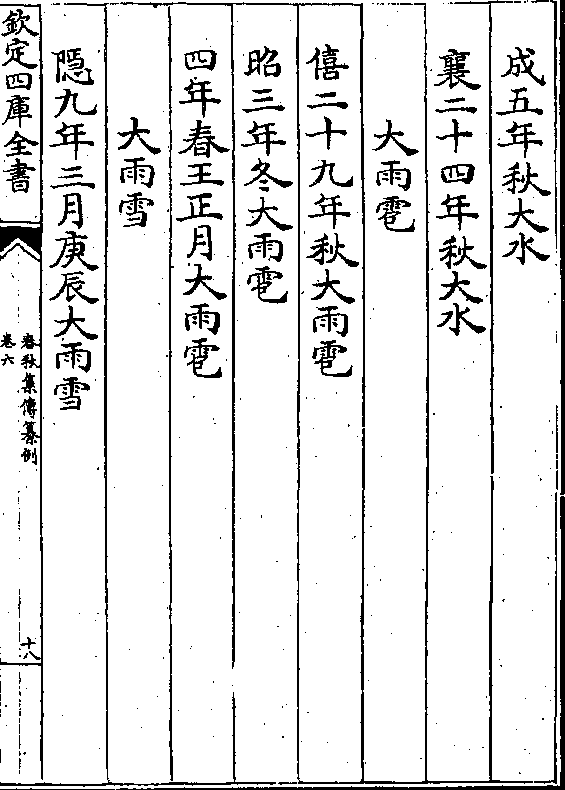 成五年秋大水
襄二十四年秋大水
大雨雹
僖二十九年秋大雨雹
昭三年冬大雨雹
四年春王正月大雨雹
大雨雪
隠九年三月庚辰大雨雪
欽定四庫全書
春秋集傳纂例
卷六
十八